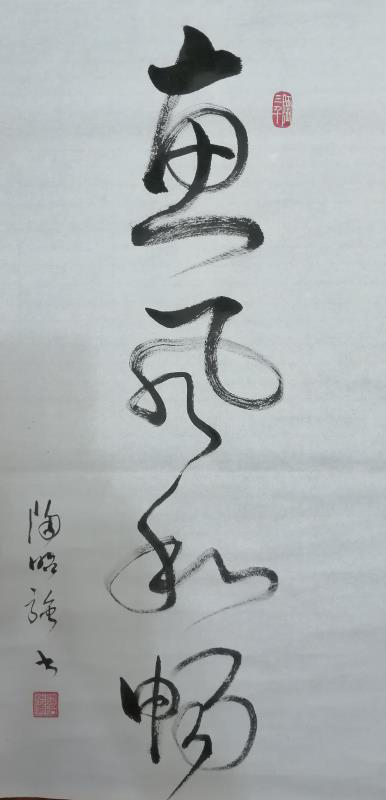 惠风和畅
陶昭强书